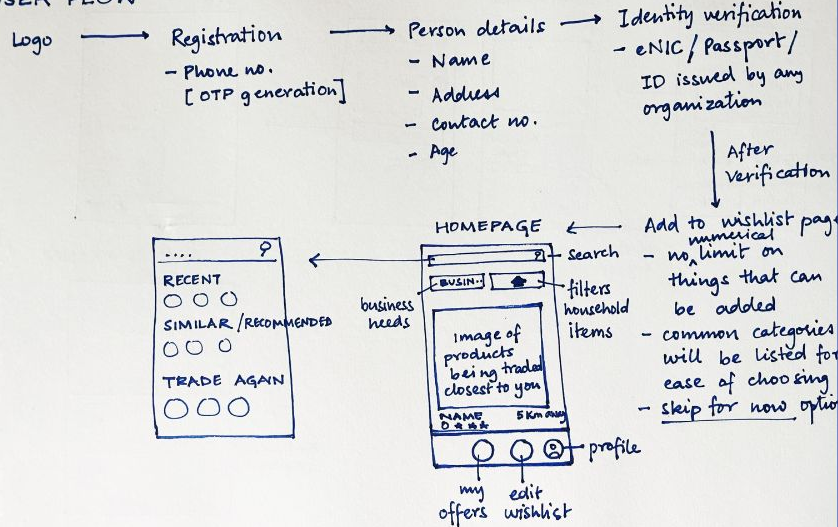 USER FLOW
Logo
Registration
- Phone no.
[OTP generation]
Person details
- Name
- Address
- Contact no.
- Age
Identity verification
- eNIC/Passport/
ID issued by any
organization
After
verification
Add to wishlist page
- no numerical limit on
things that can
be added
- common categories
will be listed for
ease of choosing
- skip for now optio
HOMEPAGE
search
BUSIN..
filters
business
needs
household
items
Image of
products
being traded
closest to you
NAME
5 Km away
profile
my
offers
edit
wishlist
....
RECENT
SIMILAR/RECOMMENDED
TRADE AGAIN